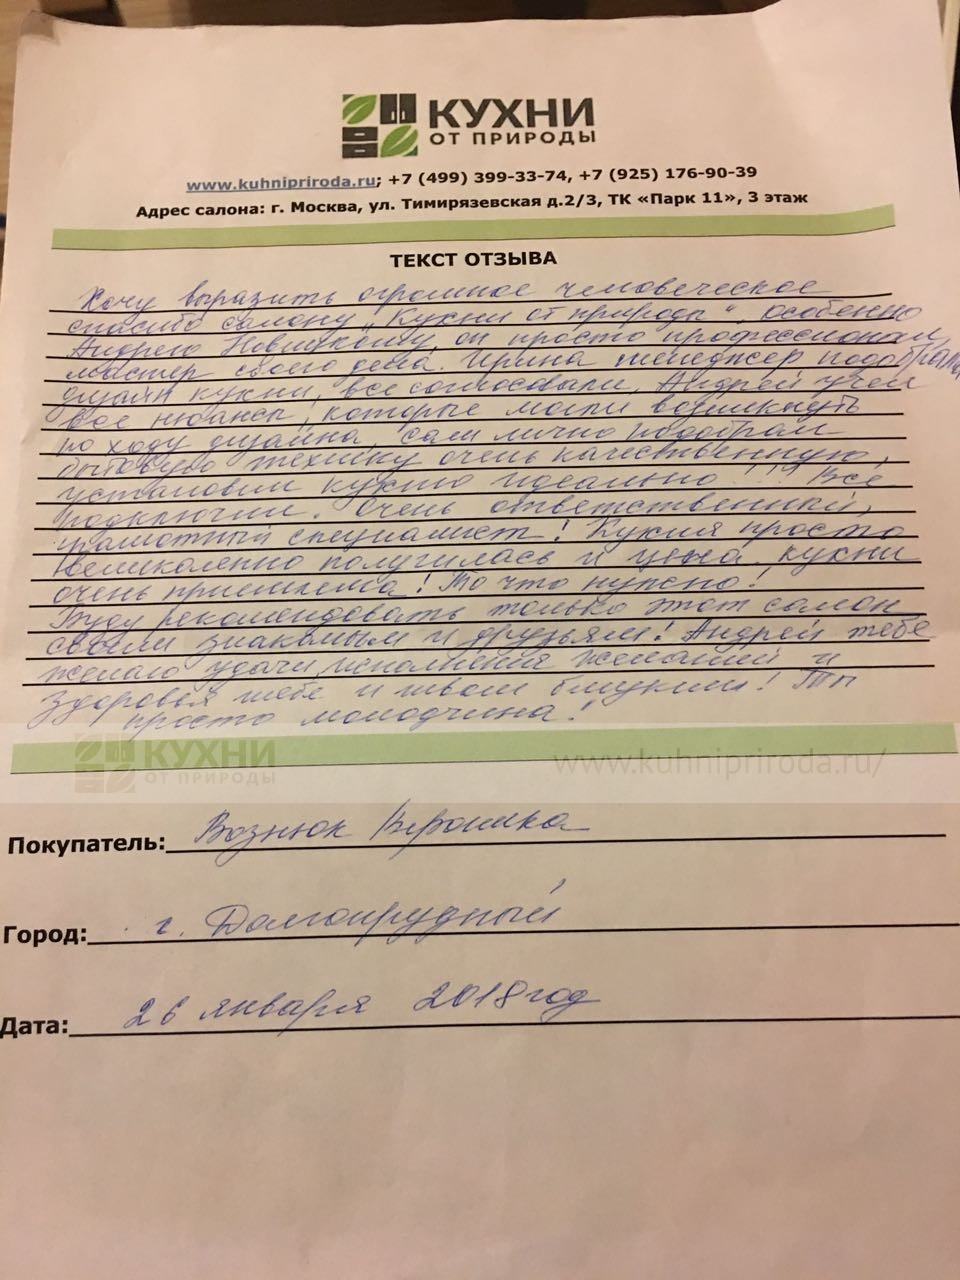 КУХНИ
ОТ ПРИРОДЫ
www.kuhnipriroda.ru; +7 (499) 399-33-74, +7 (925) 176-90-39
Адрес салона: г. Москва, ул. Тимирязевская д.2/3, ТК «Парк 11», 3 этаж
ТЕКСТ ОТЗЫВА
Хочу выразить огромное человеческое
спасибо салону „Кухни от природы", особенно
Андрею Новицкому, он просто профессионал,
мастер своего дела. Ирина менеджер подобрала
дизайн кухни, все согласовали, Андрей учел
все нюансы, которые могли возникнуть
по ходу дизайна, сам лично подобрал
бытовую технику очень качественную,
установил кухню идеально!!! Всё
подключил. Очень ответственный,
грамотный специалист! Кухня просто
великолепно получилась и цена кухни
очень приемлема! То что нужно!
Буду рекомендовать только этот салон
своим знакомым и друзьям! Андрей тебе
желаю удачи, исполнения желаний и
здоровья тебе и твоим близким! Ты
просто молодчина!
КУХНИ
ОТ ПРИРОДЫ
www.kuhnipriroda.ru/
Покупатель: Вознюк Вероника
Город: г. Долгопрудный
Дата: 26 января 2018 год